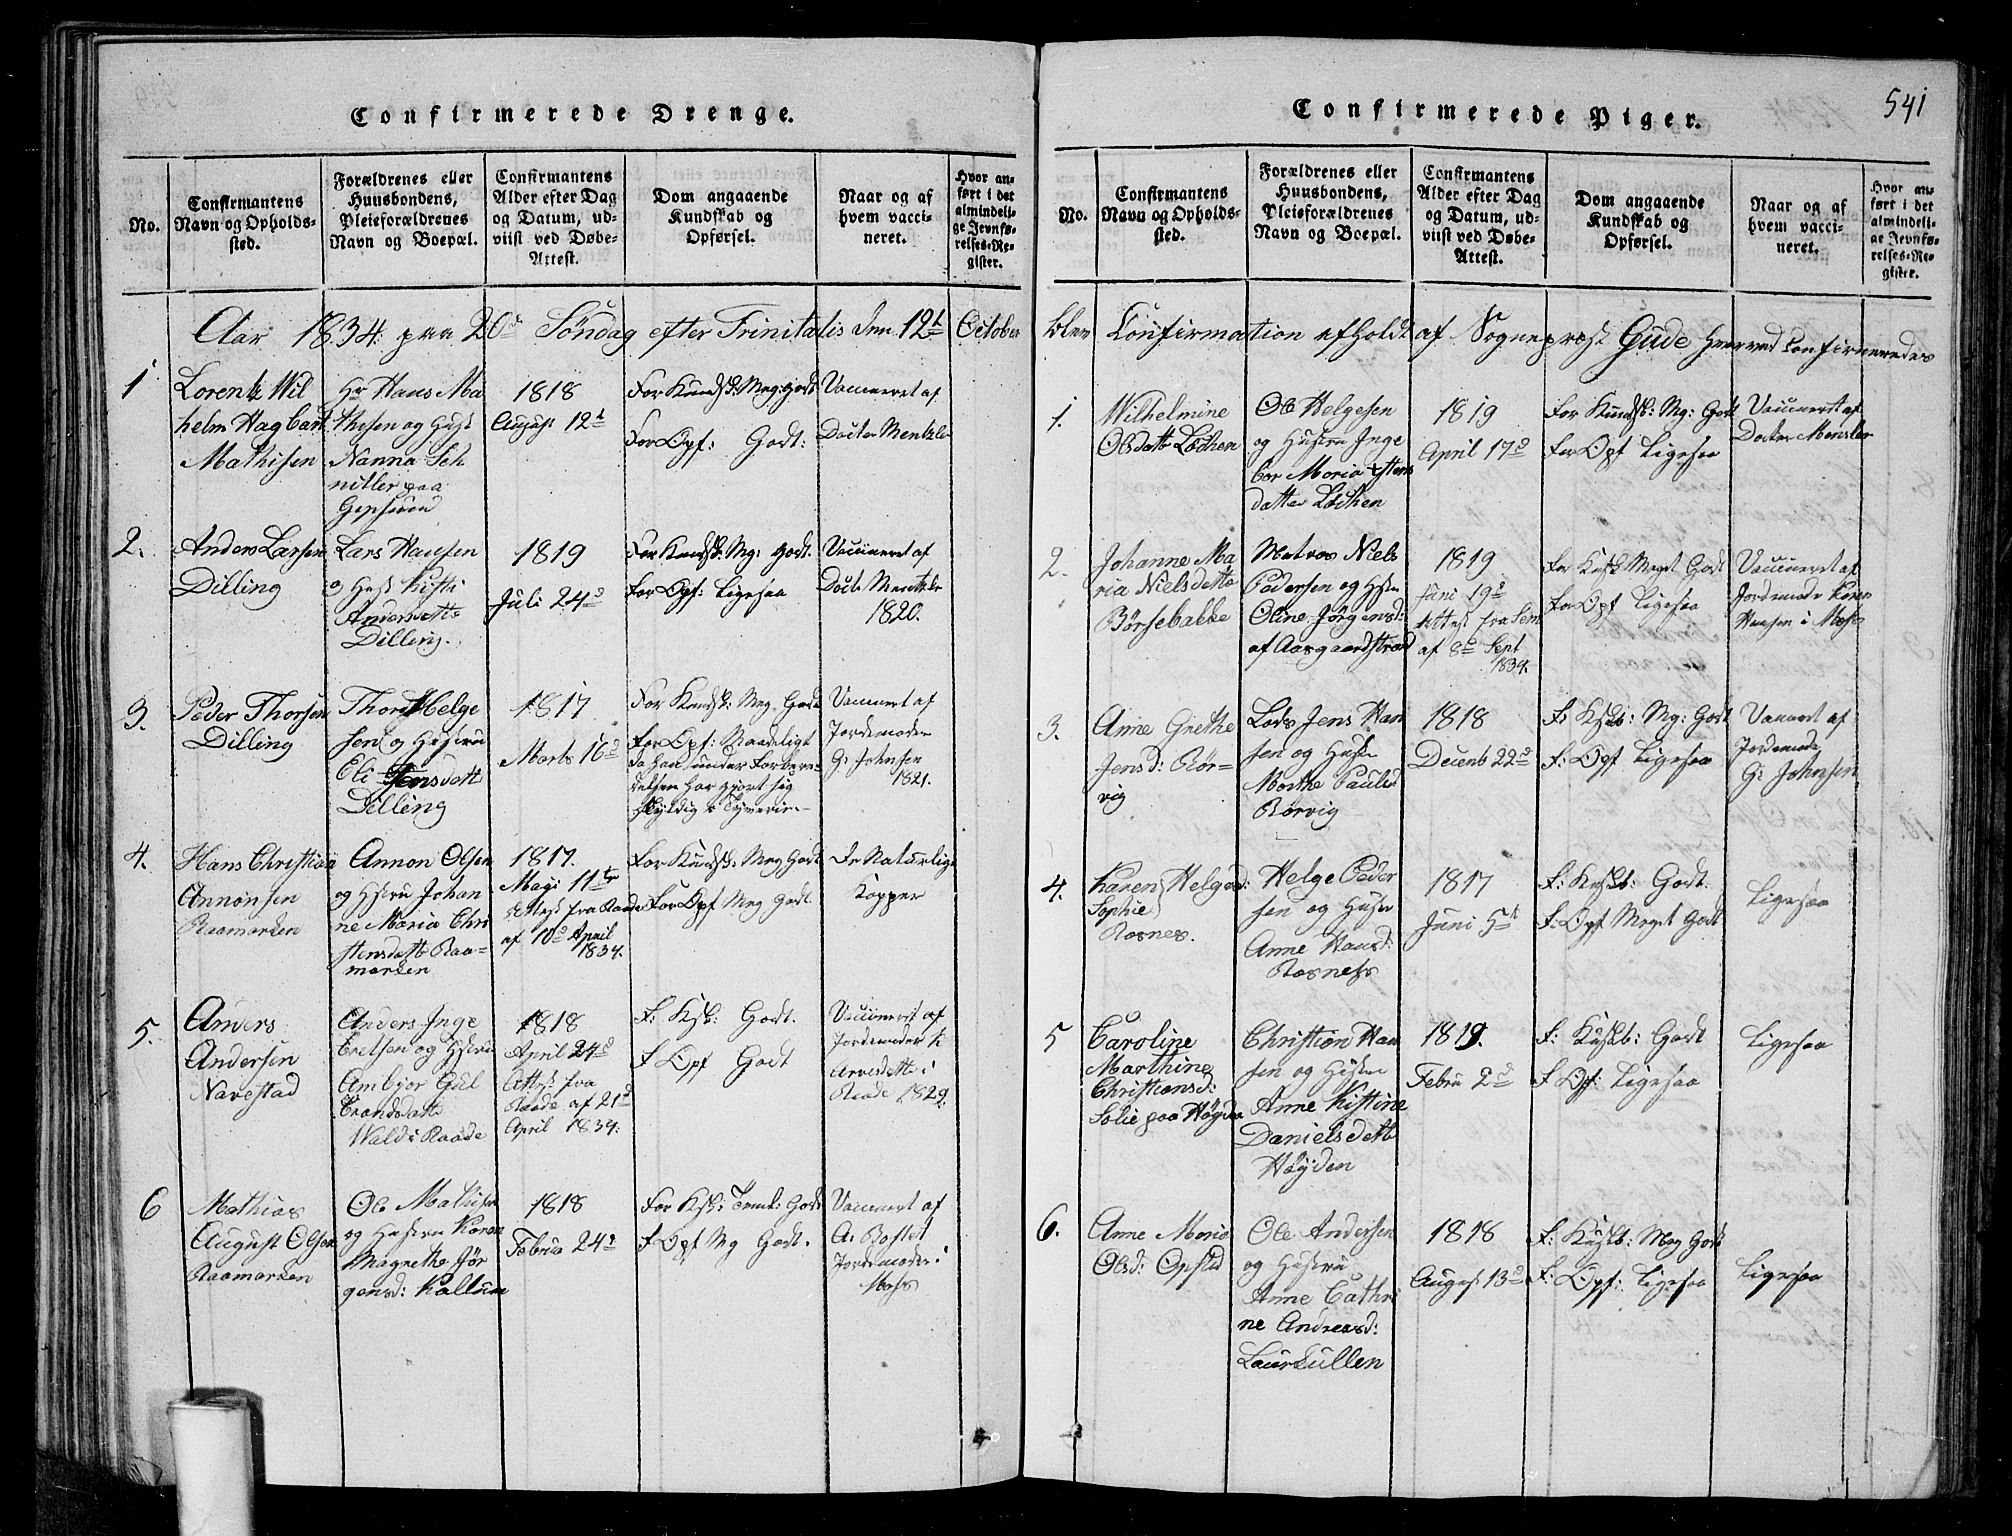 541
Confirmerede Drenge.
No.
Confirmantens
Navn og Opholds-
sted.
Forældrenes eller
Huusbondens,
Pleieforældrenes
Navn og Boepæl.
Confirmantens
Alder efter Dag
og Datum, ud-
viist ved Døbe-
Attest.
Dom angaaende
Kundskab og
Opførsel.
Naar og af
hvem vacci-
neret.
Hvor an-
ført i det
almindeli-
ge Jevnfø-
relses-Re-
gister.
Aar 1834 paa 20de Søndag efter Trinitatis den 12t October
1
Lorentz Wil
helm Hagbart
Mathisen
Hr Hans Ma
thesen og Hust
Nanna Sch
niller paa
1818
August 12t
For Kundsk: Meg: godt
For Opf: Godt:
Vaccineret af
Docter Mentzler
2.
Anders Larsen
Dilling
Lars Hansen
og Hust Kisti
Andersdatte
Dilling.
1819
Juli 24d
For Kundsk: Mg: Godt.
For Opf: Ligesaa
Vaccineret af
Docte Mentzler
1820.
3.
Peder Thorsen
Dilling
Thor Helge
sen og Hustru
Eli Jensdatt
Dilling
1817
Marts 16d
For Kundsk: Meg. Godt
For Opf: Maadeligt
da han under Forbere-
delsen har gjort sig
skyldig i Tyverie-
Vaccineret af
Jordemoder
G: Johnsen
1821.
4.
Hans Christian
Annonsen
Raamarken
Annon Olsen
og Hstru Johan
ne Maria Chri
stensdatt Raa-
marken
1817.
Maji 11te
Attest fra Raade
af 10d April
1834.
For Kundsk: Meg Godt
For Opf Meg Godt.
De Naturlige
Kopper
5.
Anders
Andersen
Navestad
Anders Inge
bretsen og Hstru
Ambjor Gul
brandsdatte
Wald i Raade
1818
April 24d
Attest fra
Raade af 21d
April 1834.
F: Ksk: Godt.
F Opf Godt
Vaccineret af
Jordemoder K
Arvesdatte i
Raade 1829.
6
Mathias
August Olsen
Raamarken
Ole Mathisen
og Hustru Karen
Magrethe Jör
gensd: Kallum
1818
Februa 24d
For Ksk: Temel: Godt
F Opf Mg Godt.
Vaccineret af
A. Bastet
Jordemoder i
Moss
Confirmerede Piger.
No.
Confirmantens
Navn og Opholds-
sted.
Forældrenes eller
Huusbondens,
Pleieforældrenes
Navn og Boepæl.
Confirmantens
Alder efter Dag
og Datum, ud-
viist ved Døbe-
Attest.
Dom angaaende
Kundskab og
Opførsel.
Naar og af
hvem vacci-
neret.
Hvor an-
ført i det
almindeli-
ge Jevnfø-
relses-Re-
gister.
blev Confirmation afholdt af Sogneprest Gude hvorved Confirmeredes
1.
Wilhelmine
Olsdatt Løchen
Ole Helgesen
og Hustru Inge
bor Maria
datter Løchen
1819
April 17d
For Kundsk: Mg: Godt
For Opf Ligesaa
Vaccineret af
Docter Mensler
2.
Johanne Ma
ria Nielsdatte
Börsebakke
Matros Niels
Pedersen og Hstru
Oline Jörgensd:
af Aasgaardstrand
1819
Juni 19d
Attest fra Sem
af 8d Sept
1834.
For Kusk Meget Godt
For Opf Ligesaa
Vaccineret af
Jordemode Karen
Hansen i Moss
3.
Anne Grethe
Jensd: Rör-
vig
Lods Jens Han
sen og Hustru
Marthe Paulsd
Rörvig
1818
Decemb 22d
F: Kskb: Mg: Godt
F: Opf Ligesaa
Vaccineret af
Jordemode
G: Johnsen
4.
Karen Helgesd:
Sophie
Rosnes.
Helge Peder
sen og Hustru
Anne Hansd:
Rosness
1817
Juni 5t
F: Kuskb: Godt.
F: Opf Meget Godt
Ligesaa
5
Caroline
Marthine
Christiansd:
Solie paa Höyden
Christian Han
sen og Hustru
Anne Kistine
Danielsdatte
Höyden
1819.
Febru 2d
F: Kuskb: Godt
F Opf: Ligesaa
Ligesaa
6.
Anne Maria
Olsd: Opstad
Ole Andersen
og Hustru
Anne Cathri
ne Andreasd:
Laurkullen
1818
August 13d
F: Kuskb: Meg Godt
F: Opf: Ligesaa
Ligesaa